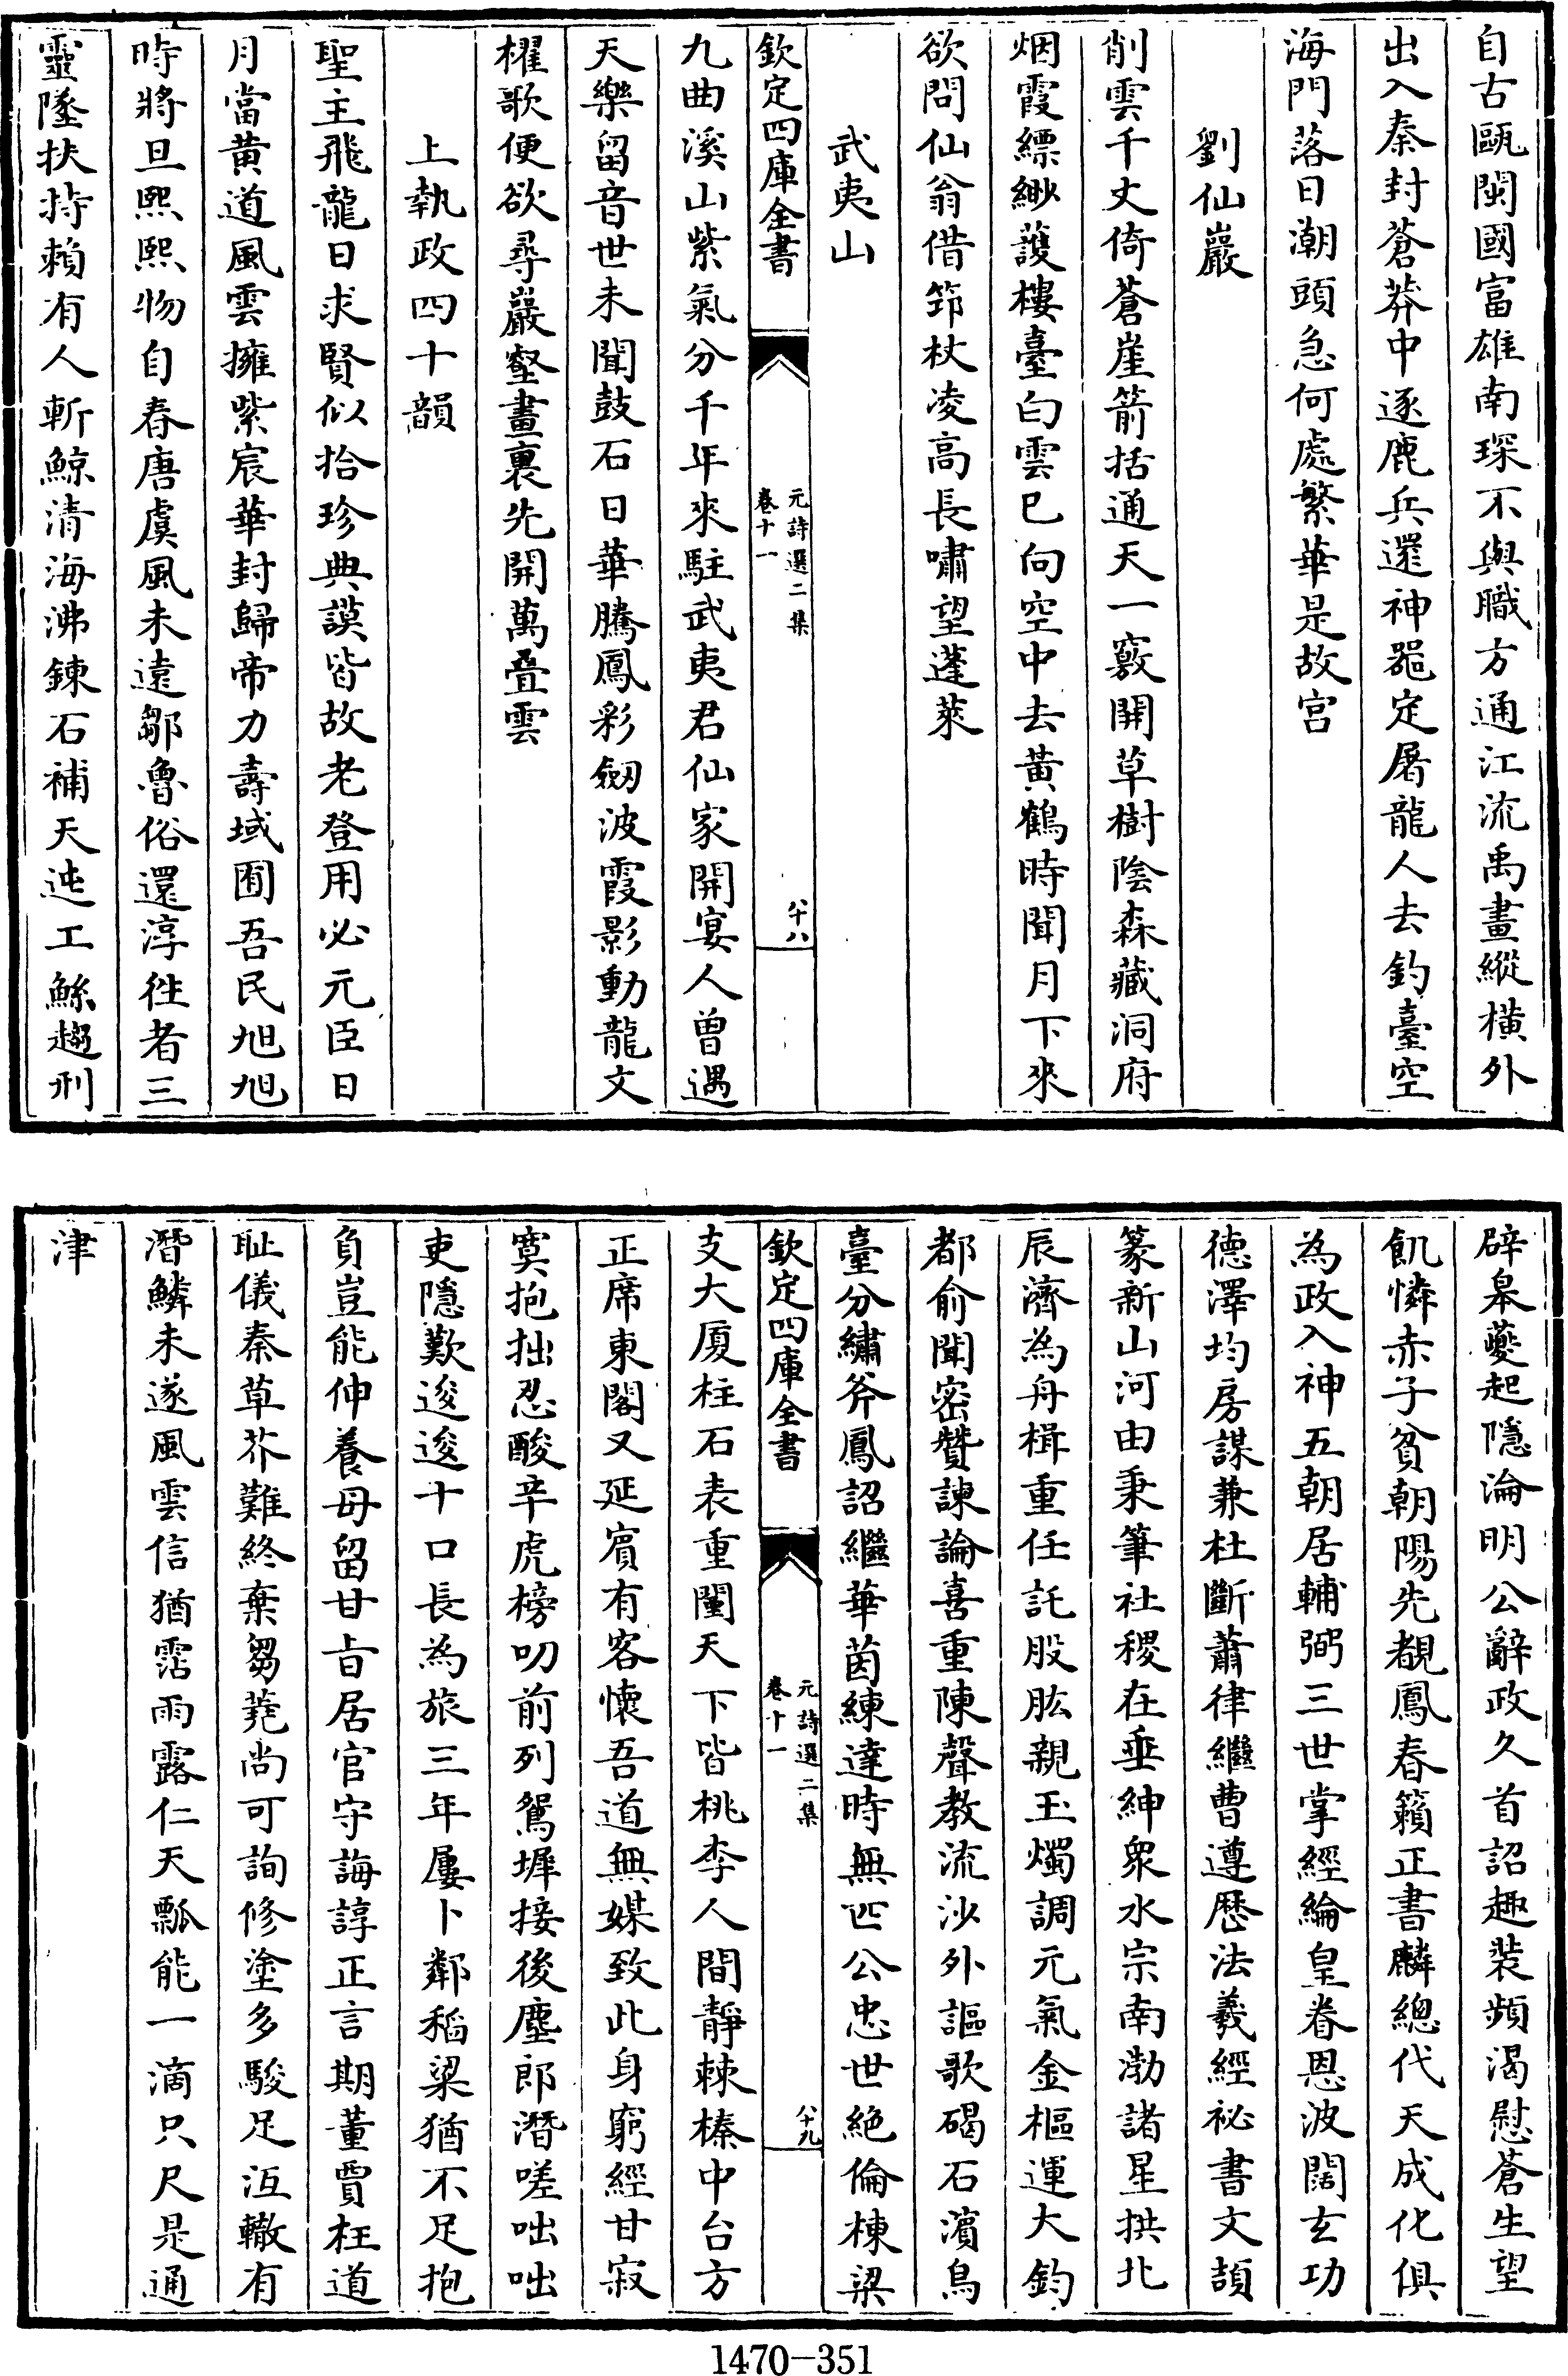 自古甌閩國富雄南琛不與職方通江流禹畫縱橫外
出入秦封蒼莽中逐鹿兵還神器定屠龍人去釣臺空
海門落日潮頭急何處繁華是故宮
劉仙巖
削雲千丈倚蒼崖箭括通天一竅開草樹陰森藏洞府
烟霞縹緲護樓臺白雲已向空中去黃鶴時聞月下來
欲問仙翁借筇杖凌高長嘯望蓬萊
武夷山
欽定四庫全書
元詩選二集
卷十一
八十八
九曲溪山紫氣分千年來駐武夷君仙家開宴人曾遇
天樂留音世未聞鼓石日華騰鳳彩劒波霞影動龍文
櫂歌便欲尋巖壑畫裏先開萬叠雲
上執政四十韻
聖主飛龍日求賢似拾珍典謨皆故老登用必元臣日
月當黃道風雲擁紫宸華封歸帝力壽域囿吾民旭旭
時將旦熙熙物自春唐虞風未遠鄒魯俗還淳徃者三
靈墜扶持賴有人斬鯨清海沸鍊石補天迍工鯀趨刑
辟皋夔起隱淪明公辭政久首詔趣裝頻渴慰蒼生望
飢憐赤子貧朝陽先覩鳳春籟正書麟總代天成化俱
為政入神五朝居輔弼三世掌經綸皇眷恩波闊玄功
德澤均房謀兼杜斷蕭律繼曹遵歷法羲經祕書文頡
篆新山河由秉筆社稷在垂紳衆水宗南渤諸星拱北
辰濟為舟楫重任託股肱親玉燭調元氣金樞運大鈞
都俞聞密贊諫論喜重陳聲教流沙外謳歌碣石濱烏
臺分繡斧鳳詔繼華茵練達時無匹公忠世絕倫棟梁
欽定四庫全書
元詩選二集
卷十一
八十九
支大厦柱石表重闉天下皆桃李人間靜棘榛中台方
正席東閣又延賔有客懷吾道無媒致此身窮經甘寂
寞抱拙忍酸辛虎榜叨前列鴛墀接後塵郎潛嗟咄咄
吏隱歎逡逡十口長為旅三年屢卜鄰稻粱猶不足抱
負豈能伸養母留甘旨居官守誨諄正言期董賈枉道
耻儀秦草芥難終棄芻蕘尚可詢修塗多駿足洰轍有
潛鱗未遂風雲信猶霑雨露仁天瓢能一滴只尺是通
津
1470-351